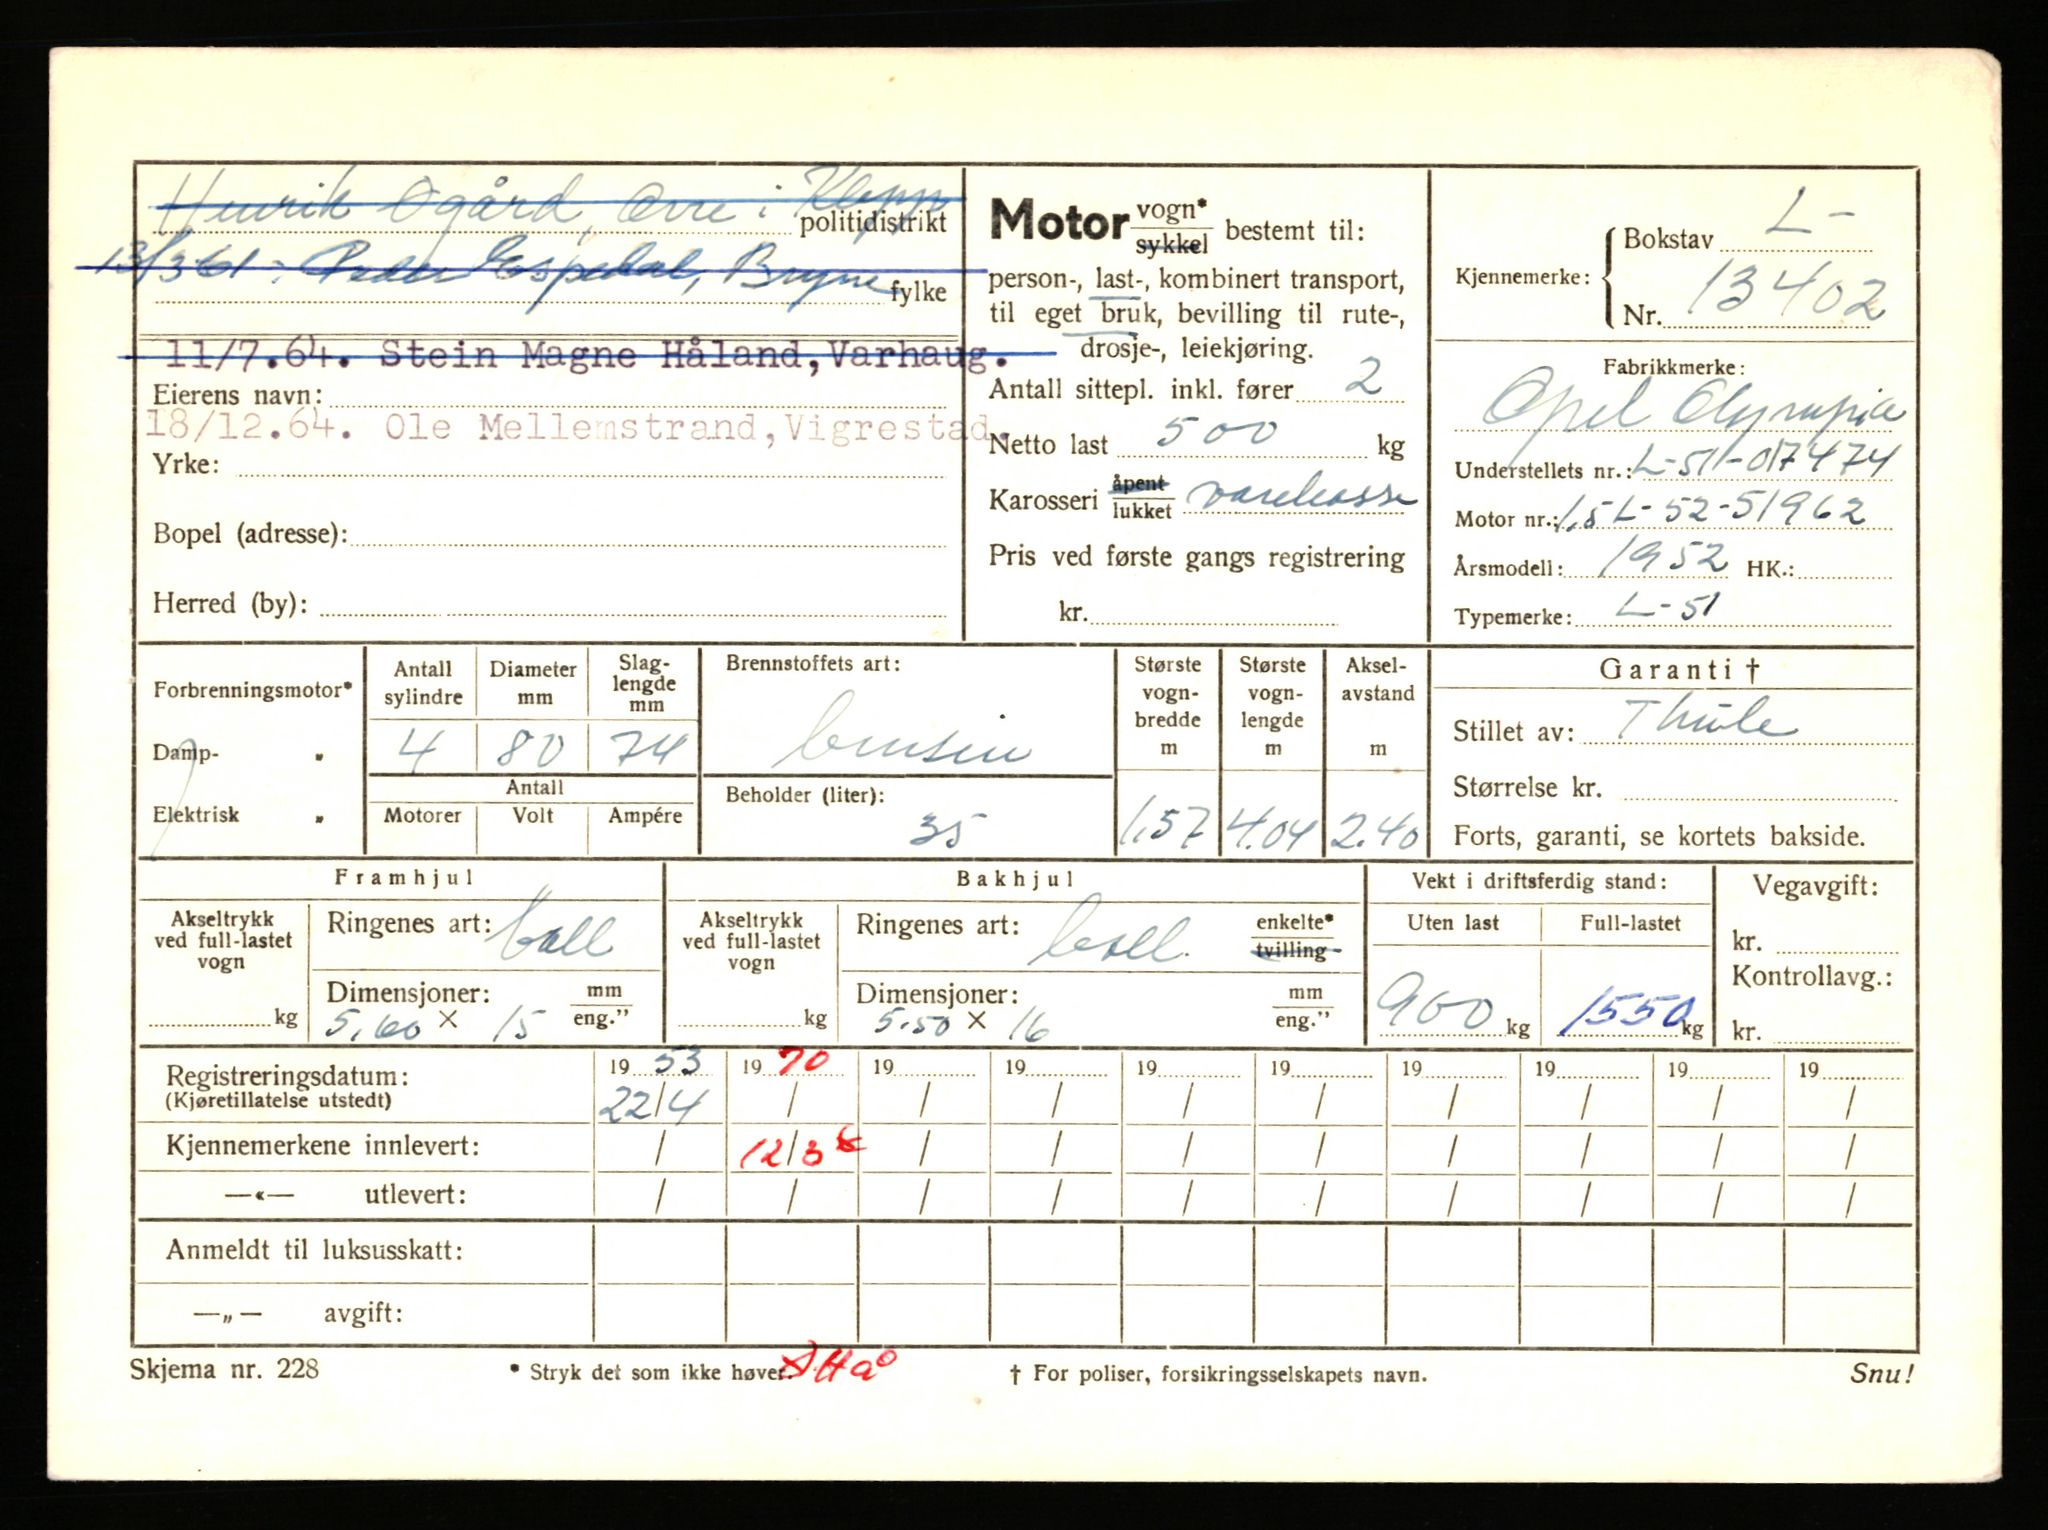 Henrik Øgård, Orre i Klepp
politidistrikt
13/3 61: Peder Espedal, Bryne
fylke
11/7.64. Stein Magne Håland, Varhaug.
Eierens navn:
18/12.64. Ole Mellemstrand, Vigrestad.
Yrke:
Bopel (adresse):
Herred (by):
Motor vogn* sykkel bestemt til:
person-, last-, kombinert transport,
til eget bruk, bevilling til rute-,
drosje-, leiekjøring.
Antall sittepl. inkl. fører 2
Netto last 500 kg
Karosseri åpent lukket varekasse
Pris ved første gangs registrering
kr.
Kjennemerke: Bokstav L-
Nr. 13402
Fabrikkmerke:
Opel Olympia
Understellets nr.: L-51-017474
Motor nr.: 1,5 L-52-51962
Årsmodell: 1952 HK.:
Typemerke: L-51
Forbrenningsmotor*
Damp- "
Elektrisk "
Antall sylindre
Diameter mm
Slag-lengde mm
4 80 74
Antall
Motorer Volt Ampére
Brennstoffets art:
bensin
Beholder (liter):
35
Største vogn-bredde m
1,57
Største vogn-lengde m
4.04
Aksel-avstand m
2.40
Garanti †
Stillet av: Thule
Størrelse kr.
Forts, garanti, se kortets bakside.
Framhjul
Akseltrykk ved full-lastet vogn
kg
Ringenes art: ball
Dimensjoner: mm eng."
5,60 × 15
Bakhjul
Akseltrykk ved full-lastet vogn
kg
Ringenes art: ball. enkelte* tvilling
Dimensjoner: mm eng."
5.50 × 16
Vekt i driftsferdig stand:
Uten last Full-lastet
900 kg 1550 kg
Vegavgift:
kr.
Kontrollavg.:
kr.
Registreringsdatum: 19 53 19 70 19 19 19 19 19 19 19 19
(Kjøretillatelse utstedt) 22/4 / / / / / / / / /
Kjennemerkene innlevert: / 12/3 / / / / / / / /
—«— utlevert: / / / / / / / / / /
Anmeldt til luksusskatt:
—„— avgift:
Skjema nr. 228
* Stryk det som ikke høver.
† For poliser, forsikringsselskapets navn.
Snu!